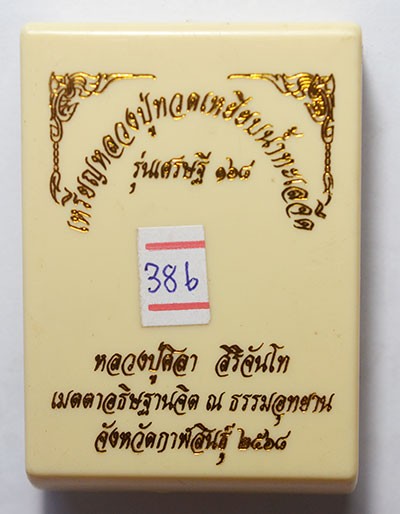 เหรียญหลวงปู่ทวดเหยียบน้ำทะเลจืด
รุ่นเศรษฐี ๑๖๘
386
หลวงปู่ศิลา สิริจันโท
เมตตาอธิษฐานจิต ณ ธรรมอุทยาน
จังหวัดกาฬสินธุ์ ๒๕๖๘